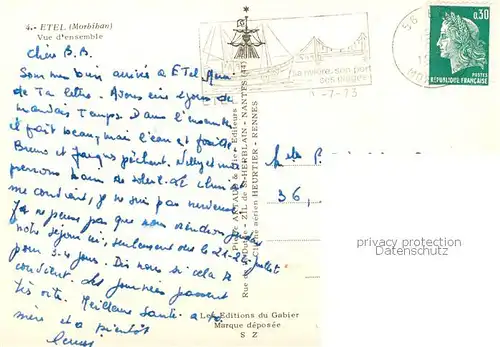 4.- ETEL (Morbihan)
Vue d'ensemble
Chère B.B.
Sommes bien arrivés à Etel.
De Ta lettre. Avons eu 2 jours de
mauvais Temps. Dans l'ensemble
il fait beau, mais l'eau est froide
Bruno et Jacques pêchent. Nelly et moi
prenons bain de soleil. Le climat
me convient, je ne suis pas nerveuse.
Je ne pense pas que nous
notre séjour ici, seulement vers le 21-22 juillet
pour 3-4 jours. Dis nous si cela te
convient. Les journées passent
très vite. Meilleure Santé à ta
mère et à bientôt
Pierre ARTAUD & Cie - Editeurs
Rue de la - ZIL de St-HERBLAIN - NANTES
Cliché aérien HEURTIER - RENNES
Les Editions du Gabier
Marque déposée
S Z
ETEL
sa rivière, son port
-7-73
56
0,30
POSTES
RÉPUBLIQUE FRANÇAISE
P.
36,
copyright protected
Datenschutz